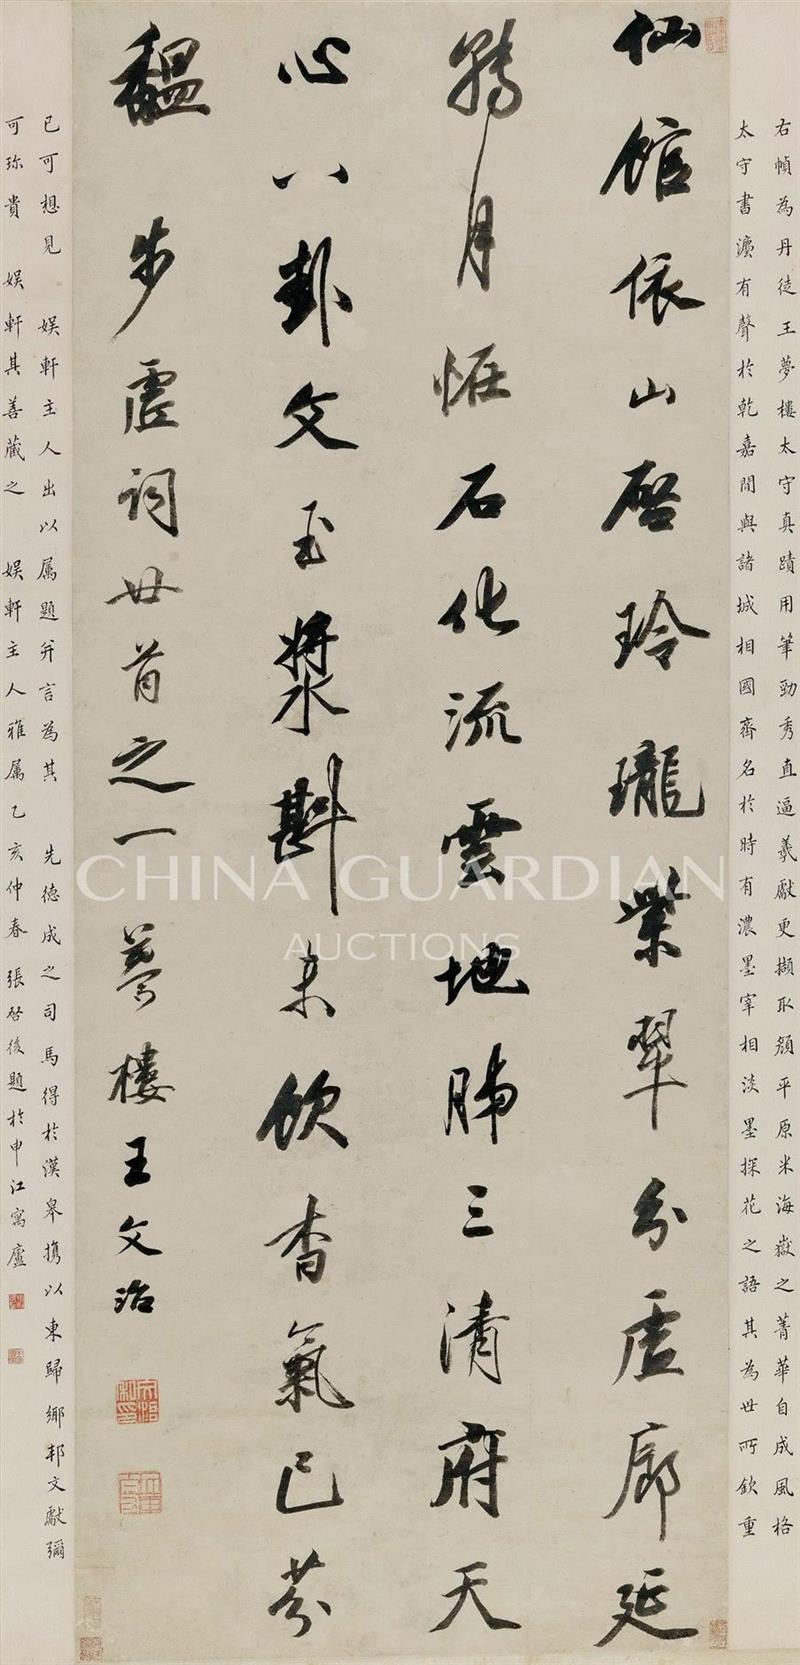 右幀為丹徒王夢樓太守真蹟用筆勁秀直逼羲獻更擷取顏平原米海嶽之菁華自成風格
太守書灋有聲於乾嘉間與諸城相國齊名於時有濃墨宰相淡墨探花之語其為世所欽重
仙館依山啓玲瓏紫翠分虛廊延
轉月恠石化流雲地肺三清府天
心八卦文玉漿斟未飲香氣已芬
馧 步虛詞廿首之一 夢樓王文治
已可想見 娛軒主人出以属題并言為其 先德成之司馬得於漢皋攜以東歸鄉邦文獻彌
可珎貴 娛軒其善藏之 娛軒主人雅属乙亥仲春張啓後題於申江寓廬
CHINA GUARDIAN
AUCTIONS